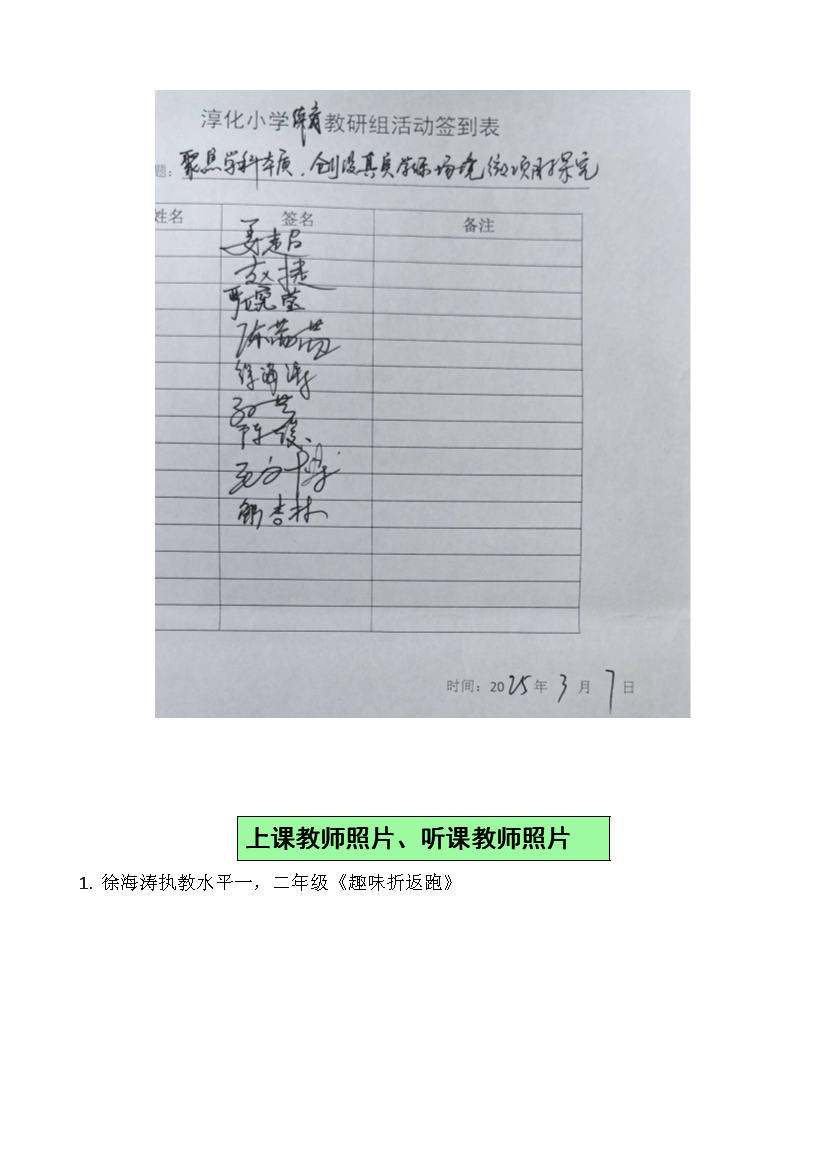 淳化小学体育教研组活动签到表
题：聚焦学科本质，创设真实学练场境微项目探究
姓名 签名 备注
赵捷
严婉莹
陈蕾蕾
徐海涛
孙芸
陈俊
郭杏林
时间：2025年3月7日
上课教师照片、听课教师照片
1. 徐海涛执教水平一，二年级《趣味折返跑》